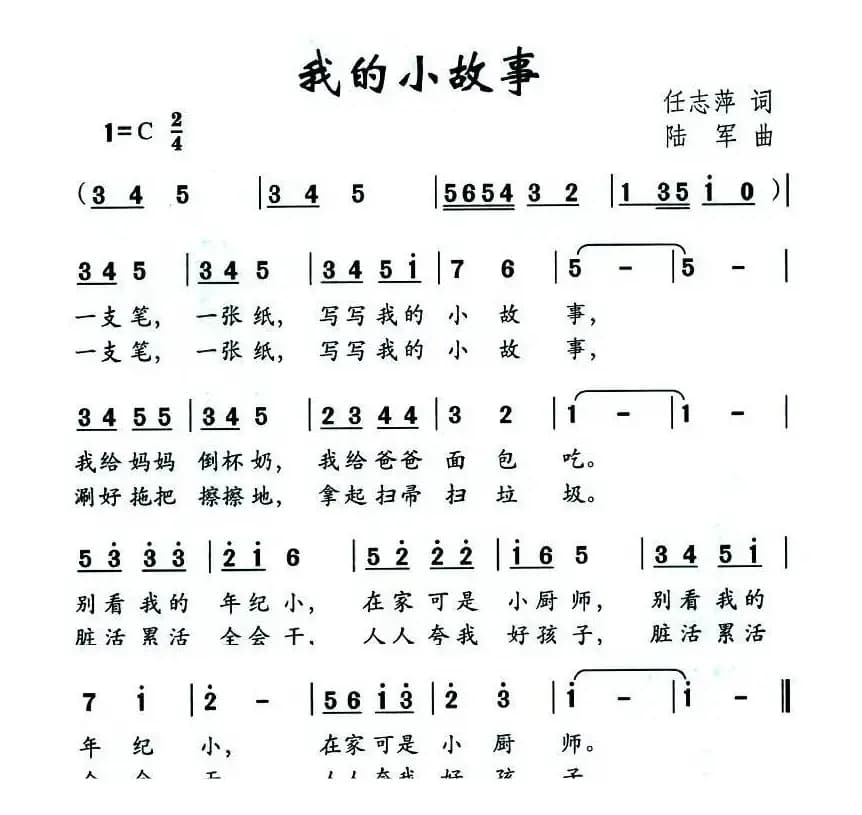 我的小故事
任志萍 词
1=C 2/4
陆 军 曲
(3 4 5 | 3 4 5 | 5654 3 2 | 1 35 i 0 )|
3 4 5 | 3 4 5 | 3 4 5 i | 7 6 | 5 - | 5 - |
一支笔, 一张纸, 写写我的 小 故 事,
一支笔, 一张纸, 写写我的 小 故 事,
3 4 5 5 | 3 4 5 | 2 3 4 4 | 3 2 | 1 - | 1 - |
我给妈妈 倒杯奶, 我给爸爸 面 包 吃。
涮好拖把 擦擦地, 拿起扫帚 扫 垃 圾。
5 3̇ 3̇ 3̇ | 2̇ i 6 | 5 2̇ 2̇ 2̇ | i 6 5 | 3 4 5 i |
别看我的 年纪小, 在家可是 小厨师, 别看我的
脏活累活 全会干, 人人夸我 好孩子, 脏活累活
7 i | 2̇ - | 5 6 i 3̇ | 2̇ 3̇ | i - | i - ‖
年 纪 小, 在家可是 小 厨 师。
人人夸我 好 孩 子